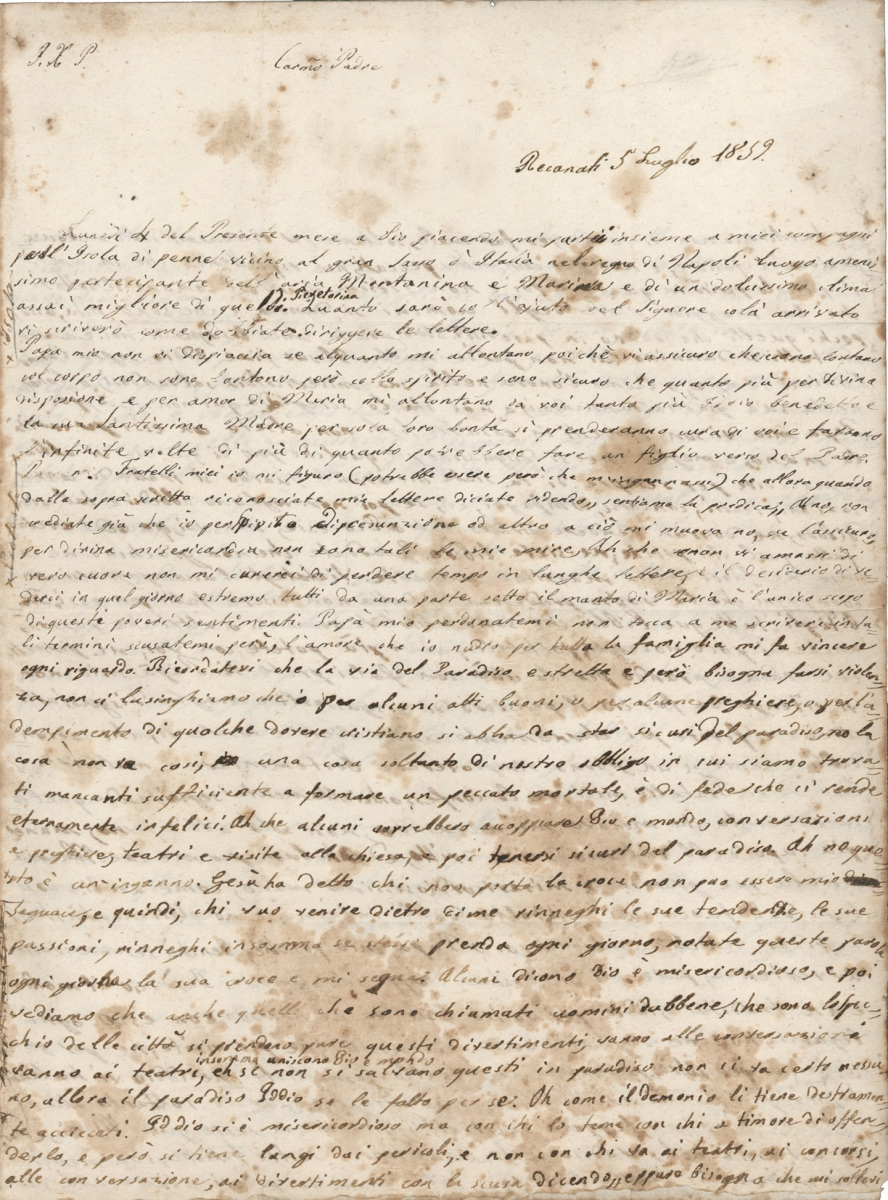 J. X P.
Carmo Padre
Recanati 5 Luglio 1859.
Lunedì 4 del Presente mese a Dio piacendo mi parto insieme a miei compagni
pell'Isola di penne vicino al gran Sasso d'Italia nel regno di Napoli luogo ameni
simo partecipante dell'aria Montanina e Marina e di un dolcissimo clima
assai migliore di quel Di Pievetorina. Quanto sarò coll'ajuto del Signore colà arrivato
vi scriverò come dobbiate diriggere le lettere.
Papà mio non vi dispiaccia se alquanto mi allontano poichè vi assicuro che sono lontano
col corpo non sono lontono però collo spirito e sono sicuro che quanto più per Divina
disposizione e per amor di Maria mi allontano da voi tanta più Iddio benedetto e
la sua Santissima Madre per sola loro bontà si prenderanno cura di voi e faranno
infinite volte di più di quanto potrebbere fare un figlio verso del Padre.
Fratelli miei io mi figuro (potrebbe essere però che m'ingannassi) che allora quando
dalla sopra scritta riconosciate mie lettere diciate ridendo,, sentiamo la predica,, Ah no, non
crediate già che io per spirito Di presunzione od altro a ciò mi muova no, ve l'assicuro,
per divina misericordia non sono tali le mie mire, Ah che se non vi amassi di
vero cuore non mi curerei di perdere tempo in lunghe lettere, e il desiderio di ve-
derci in quel giorno estremo tutti da una parte sotto il manto di Maria è l'unico scopo
di questi poveri sentimenti. Papà mio perdonatemi non tocca a me scrivervi in ta-
li termini scusatemi però, l'amore che io nudro per tutta la famiglia mi fa vincere
ogni riguardo. Ricordatevi che la via del Paradiso e stretta e però bisogna farsi violen-
za, non ci lusinghiamo che o per alcuni atti buoni, o per alcune preghiere, o per l'a-
dempimento di qualche dovere cristiano si abba da star sicuri del paradiso, no la
cosa non va così, una cosa soltanto di nostro obbligo in cui siamo trova-
ti mancanti sufficiente a formare un peccato mortale, è di fede che ci rende
eternamente infelici. Ah che alcuni vorrebbero accoppiare Dio e mondo, conversazioni
e preghiere, teatri e visite alla chiesa, e poi tenersi sicuri del paradiso. Ah no que-
sto è un inganno. Gesù ha detto chi non porta la croce non può essere mio
seguace, e quindi, chi vuo venire dietro di me rinneghi le sue tendenze, le sue
passioni, rinneghi insomma se stesso prenda ogni giorno, notate queste parole
ogni giorno la sua croce e mi segua. Alcuni dicono Dio è misericordioso, e poi
vediamo che anche quelli che sono chiamati uomini dabbene, che sono lo spec-
chio delle città si prendono pure questi divertimenti, vanno alle conversazioni
vanno ai teatri, insomma uniscono Dio e mondo eh se non si salvano questi in paradiso non ci va certo nessu-
no, allora il paradiso Iddio se le fatto per se. Oh come il demonio li tiene destramen-
te acciecati. Iddio si è misericordioso ma con chi lo teme con chi a timore di offen-
derlo, e però si tiene lungi dai pericoli, e non con chi va ai teatri, ai concorsi,
alle conversazione, ai divertimenti con la scusa dicendo,, eppure bisogna che mi sollevi